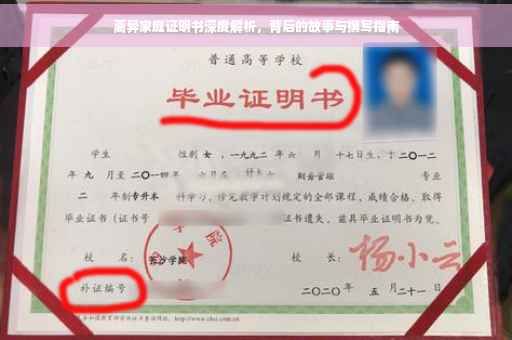 离异家庭证明书深度解析，背后的故事与撰写指南
普通高等学校
毕业证明书
学生 性别 女，一九九二年 六 月 十七日生，于二〇一二
年 九 月至二〇一四年 六月在 财务管理 专业
二 年制专升本 科学习，修完教学计划规定的全部课程，成绩合格，取得
毕业证书（证书号 证书遗失，兹具毕业证明书为凭。
校 名： 长沙学院 校 长： 杨小云
补证编号 二〇二〇年 五 月二十一日